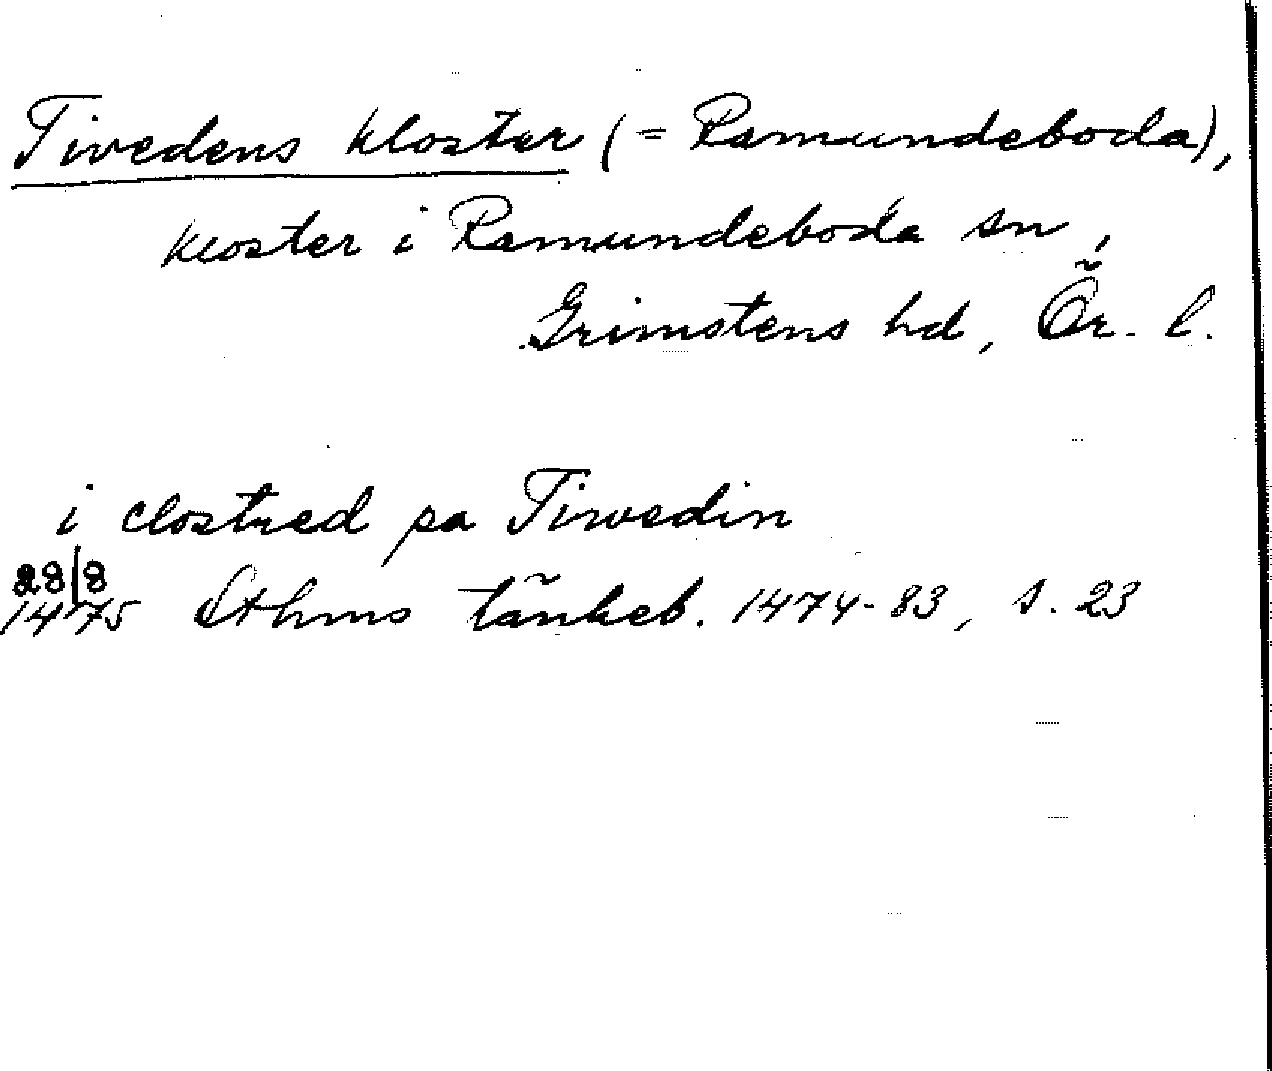 Tivedens kloster (= Ramundeboda),
kloster i Ramundeboda sn,
Grimstens hd, Ör. l.
i clostred pa Tirwedin
28/8
1475 Sthms tänkeb. 1474-83, s. 23